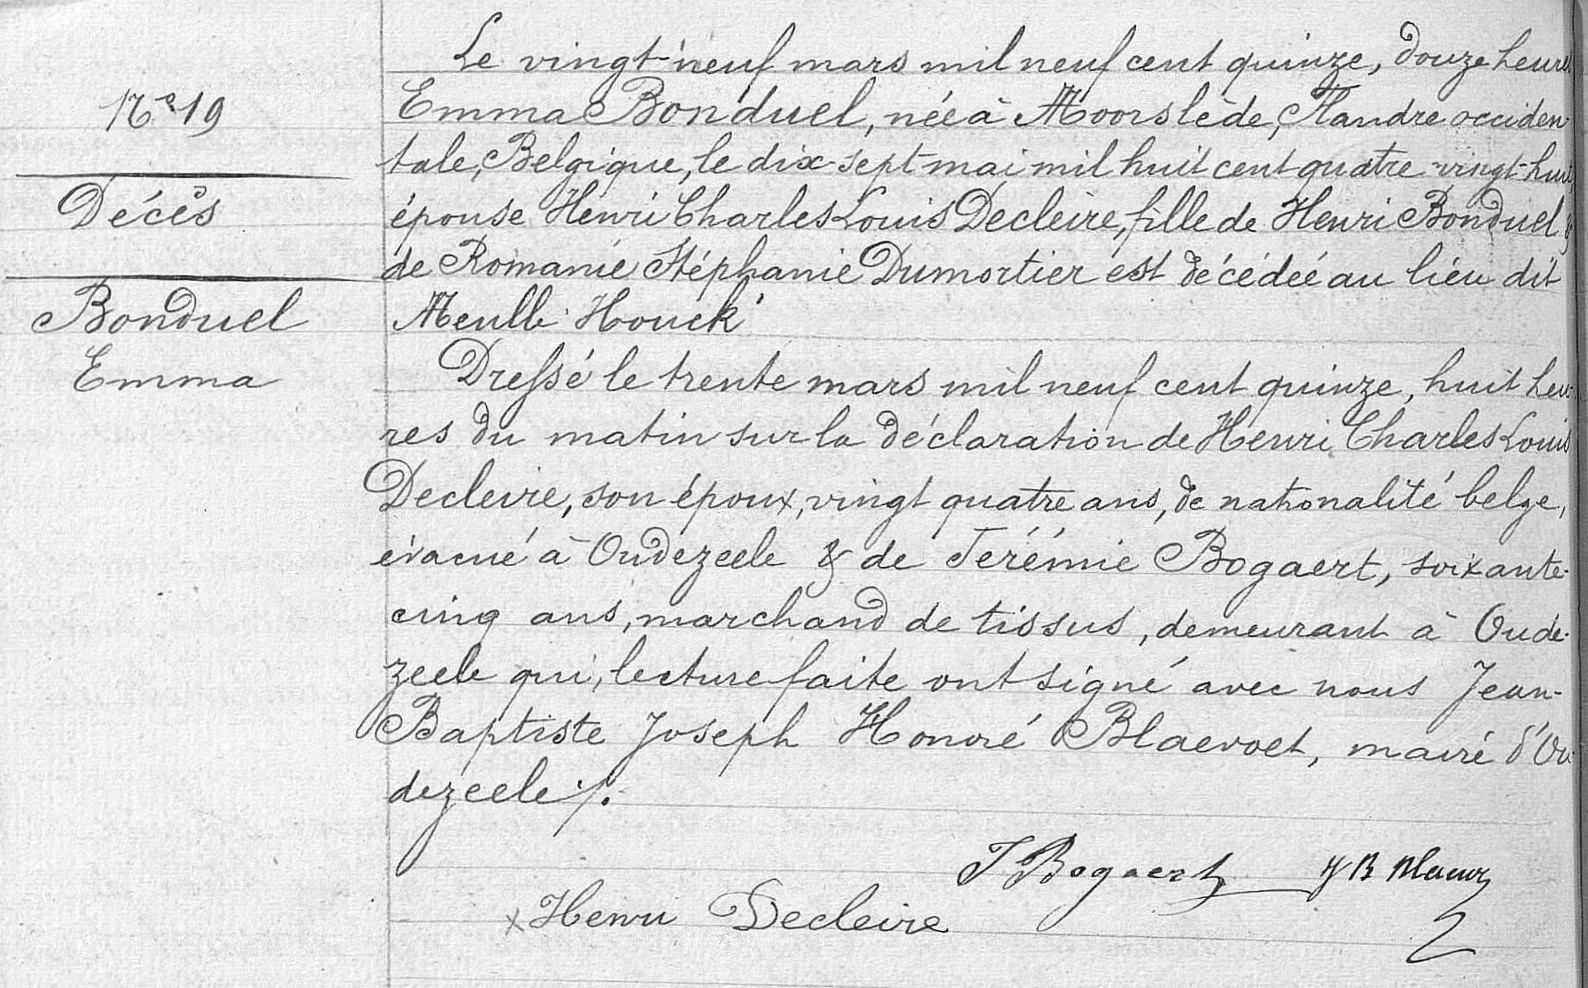 Le vingt-neuf mars mil neuf cent quinze, douze heures
Nº 19
Emma Bonduel, née à Moorslède, Flandre occiden-
tale, Belgique, le dix-sept mai mil huit cent quatre-vingt-huit
Décès
épouse Henri Charles Louis Decleire, fille de Henri Bonduel &
de Romanie Stéphanie Dumortier est décédée au lieu dit
Bonduel
Meulle Houck
Emma
Dressé le trente mars mil neuf cent quinze, huit heu-
res du matin sur la déclaration de Henri Charles Louis
Decleire, son époux, vingt quatre ans, de nationalité belge,
évacué à Oudezeele & de Jérémie Bogaert, soixante-
cinq ans, marchand de tissus, demeurant à Oude-
zeele qui, lecture faite ont signé avec nous Jean-
Baptiste Joseph Honoré Blaevoet, maire d'Ou-
dezeele ./.
J Bogaert
Henri Decleire